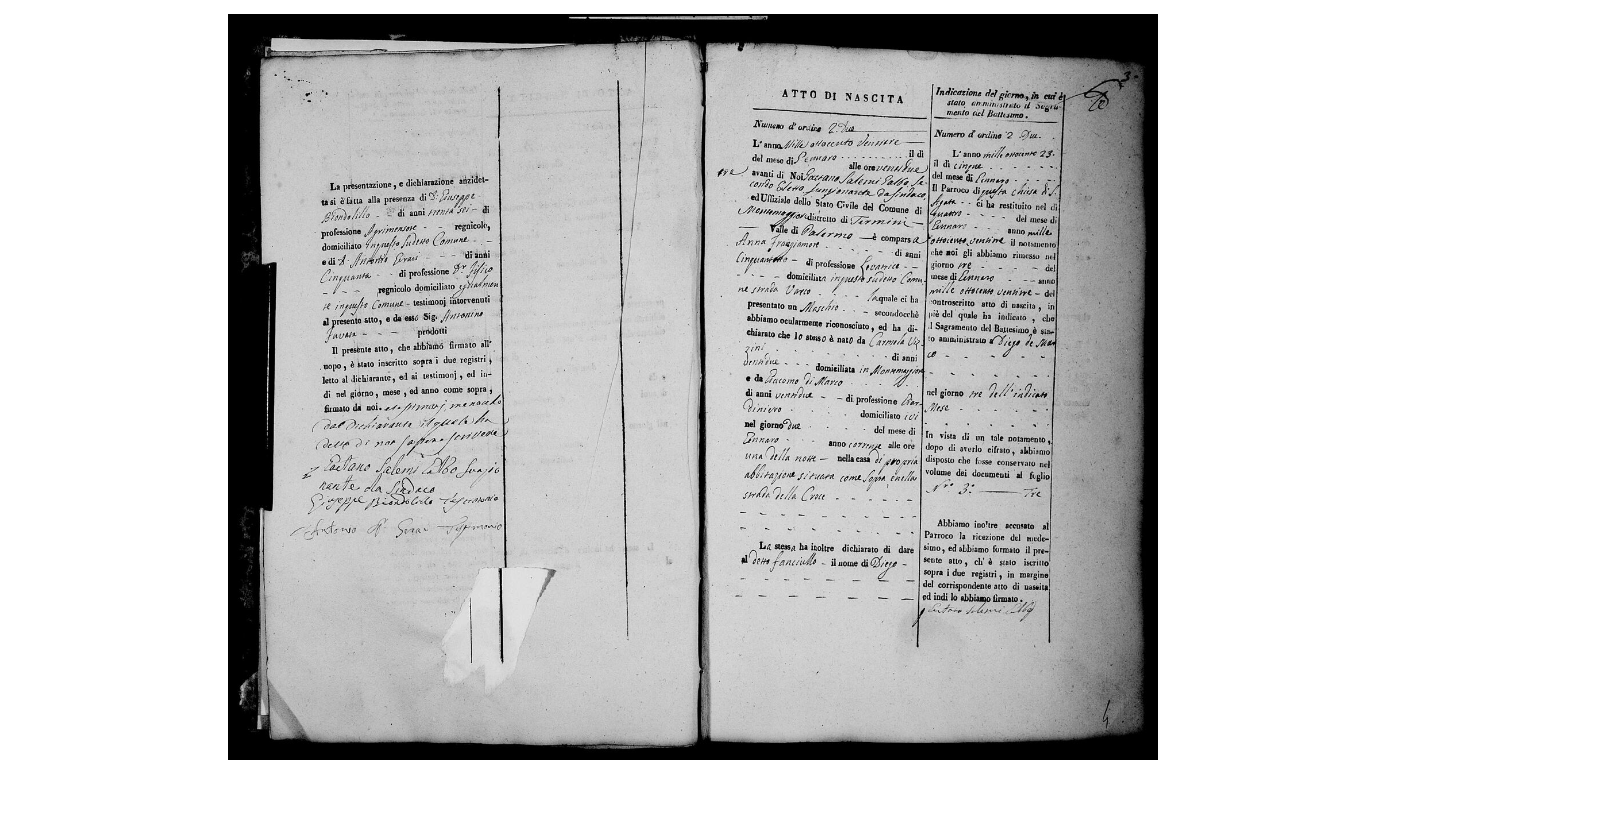 La presentazione, e dichiarazione anzidet-
ta si è fatta alla presenza di D. Giuseppe
Biondolillo di anni trenta sei - di
professione Agrimensore - - regnicolo,
domiciliato in questo sudetto Comune - -
e di D. Antonio di anni
Cinquanta - - di professione Dr Fisico
- - - regnicolo domiciliato
te in questo Comune - testimonj intervenuti
al presente atto, e da esso Sig. Antonino
prodotti
Il presente atto, che abbiamo firmato all'
uopo, è stato inscritto sopra i due registri,
letto al dichiarante, ed ai testimonj, ed in-
di nel giorno, mese, ed anno come sopra,
firmato da noi. e testimonj menocchè
dal Dichiarante il quale ha
detto di non sapere scrivere
Gaetano Salemi Calbo funzio
nante da Sindaco
Giuseppe Biondolillo Testimonio
Antonio Testimonio
3
ATTO DI NASCITA
Numero d'ordine 2. Due
L'anno Mille ottocento ventitre
il di
del mese di Gennaro
tre alle ore ventidue
avanti di Noi Gaetano Salemi Calbo Se
condo Eletto funzionante da Sindaco
ed Uffiziale dello Stato Civile del Comune di
Montemaggiore distretto di Termini
Valle di Palermo è comparsa
Anna
di anni
Cinquantotto - di professione Levatrice
- - - - domiciliata in questo sudetto Comu
ne strada - - - - laquale ci ha
presentato un Maschio - - - secondocchè
abbiamo ocularmente riconosciuto, ed ha di-
chiarato che lo stesso è nato da Carmela Viz
zini - - - - - di anni
ventidue - - - domiciliata in Montemaggiore
e da Giacomo di Marco - - -
di anni ventidue - - di professione Giar
diniero - - - domiciliato ivi
nel giorno due - - - del mese di
Gennaro - - - anno corrente alle ore
una della notte - nella casa di propria
abbitazione situata come sopra, e nella
strada della Croce - - - - -
La stessa ha inoltre dichiarato di dare
al detto fanciullo - il nome di Diego -
Indicazione del giorno, in cui è
stato amministrato il Sagra-
mento del Battesimo.
Numero d'ordine 2 Due.
L'anno mille ottocento 23.
il di cinque - - - - -
del mese di Gennaro - - -
Il Parroco di questa chiesa di S.
Agata - - ci ha restituito nel di
quattro - - - - del mese di
Gennaro anno mille
ottocento ventitre il notamento
che noi gli abbiamo rimesso nel
giorno tre - - - - del
mese di Gennaro anno
mille ottocento ventitre - del
controscritto atto di nascita, in
piè del quale ha indicato, che
il Sagramento del Battesimo è sta-
to amministrato a Diego de Mar
co - - - - -
nel giorno tre dell'indicato
Mese - - - - -
In vista di un tale notamento,
dopo di averlo cifrato, abbiamo
disposto che fosse conservato nel
volume dei documenti al foglio
Nro 3. Tre
Abbiamo inoltre accusato al
Parroco la ricezione del mede-
simo, ed abbiamo formato il pre-
sente atto, ch'è stato iscritto
sopra i due registri, in margine
del corrispondente atto di nascita
ed indi lo abbiamo firmato.
Gaetano Salemi Calbo